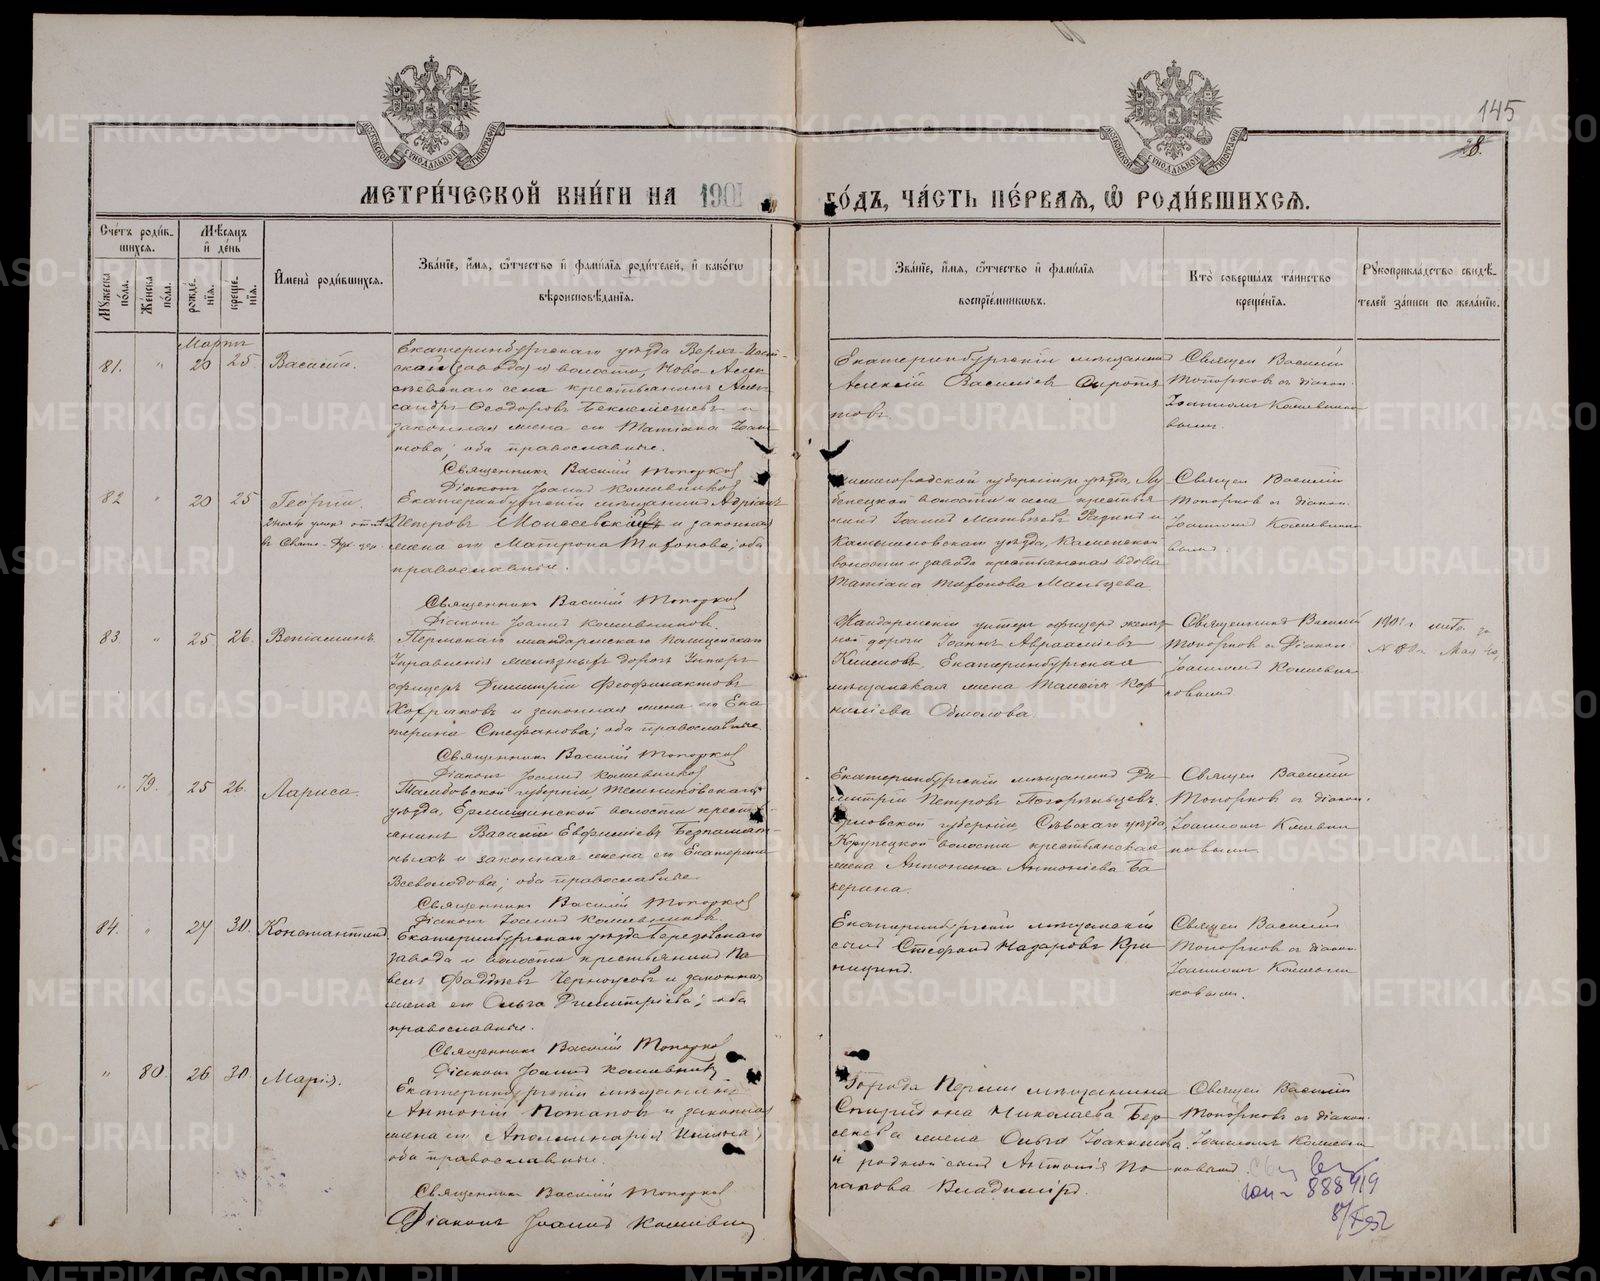 145
28.
МЕТРИ́ЧЕСКОЙ КНИ́ГИ НА 1901
ГО́ДЪ, ЧА́СТЬ ПЕ́РВАЯ, Ѡ РОДИ́ВШИХСЯ.
Счетъ родив-
шихся.
Мужеска пола.
Женска пола.
Мѣсяцъ и день
рожде-
нія.
креще-
нія.
Имена родившихся.
Званіе, имя, отчество и фамилія родителей, и какогѡ
вѣроисповѣданія.
Званіе, имя, отчество и фамилія
воспріемникѡвъ.
Кто совершалъ таинство
крещенія.
Рукоприкладство свидѣ-
телей записи по желанію.
Мартъ
81. " 20 25 Василій.
Екатеринбургскаго уѣзда Верхъ-Исет-
скай (завода) и волости, Ново-Алек-
сѣевскаго села крестьянинъ Алек-
сандръ Ѳеодоровъ Бекленищевъ и
законная жена его Татіана Іоан-
нова; оба православные.
Священникъ Василій Топорковъ
Діаконъ Іоаннъ Кошевниковъ
Екатеринбургскій мѣщанинъ
Алексѣй Васильевъ Сиротя
товъ
Священ Василій
Топорковъ съ діакон.
Іоанномъ Кошевнико
вымъ.
82 " 20 25 Георгій.
Екатеринбургскій мѣщанинъ Адріанъ
Петровъ Моисеевскихъ и законная
жена его Матрона Тихонова; оба
православные.
Священникъ Василій Топорковъ
Діаконъ Іоаннъ Кошевниковъ.
Нижегородской губерніи уѣзда, Лу
бенецкой волости и села крестья
нинъ Іоаннъ Матвѣевъ Рядинъ и
Камышловскаго уѣзда, Каменской
волости и завода крестьянская вдова
Татіана Тихонова Мальцева
Священ Василій
Топорковъ съ діакон.
Іоанномъ Кошевнико
вымъ.
83 " 25 26. Веніаминъ.
Пермскаго жандармскаго Полицейскаго
Управленія желѣзныхъ дорогъ Унтеръ
офицеръ Димитрій Феофилактовъ
Хохряковъ и законная жена его Ека
терина Стефанова; оба православные
Священникъ Василій Топорковъ
Діаконъ Іоаннъ Кошевниковъ
Жандармскій унтеръ офицеръ желѣз
ной дороги Іоаннъ Авраамовъ
Екатеринбургская
мѣщанская жена Таисія Кор
ниліева Обжолова.
Священникъ Василій
Топорковъ съ Діакон
Іоанномъ Кошевни
ковымъ.
1901 г. мет. за
№ 81 Мая
" 79. 25 26. Лариса.
Тамбовской губерніи Темниковскаго
уѣзда, Ермишинской волости кресть
янинъ Василій Евфиміевъ Безпамят-
ныхъ и законная жена его Екатерина
Всеволодова; оба православные
Священникъ Василій Топорковъ
Діаконъ Іоаннъ Кошевниковъ.
Екатеринбургскій мѣщанинъ Ди
митрій Петровъ Погорѣльцевъ.
Орловской губерніи, Сѣвскаго уѣзда
Корупецкой волости крестьянская
жена Антонина Антоніева Ба
керина.
Священ Василій
Топорковъ съ діакон.
Іоанномъ Кошевни
ковымъ.
84. " 27 30. Константинъ.
Екатеринбургскаго уѣзда Березовскаго
завода и волости крестьянинъ Па
велъ Фаддѣевъ Черноусовъ и законная
жена его Ольга Димитріева; оба
православные.
Священникъ Василій Топорковъ
Діаконъ Іоаннъ Кошевниковъ
Екатеринбургскій мѣщанскій
сынъ Стефанъ Назаровъ Кри
ницинъ.
Священ Василій
Топорковъ съ діакон.
Іоанномъ Кошевни
ковымъ.
" 80. 26 30. Марія.
Екатеринбургскій мѣщанинъ
Антоній Потаповъ и законная
жена его Аполлинарія Ильина;
оба православные.
Священникъ Василій Топорковъ
Діаконъ Іоаннъ Кошевник
Города Перми мѣщанина
Спиридона Николаева Бер
сенева жена Ольга Іоакимова.
и родной сынъ Антонія По
тапова Владиміръ.
Священ Василій
Топорковъ съ діакон.
Іоанномъ Кошевни
ковымъ.
888419
METRIKI.GASO-URAL.RU